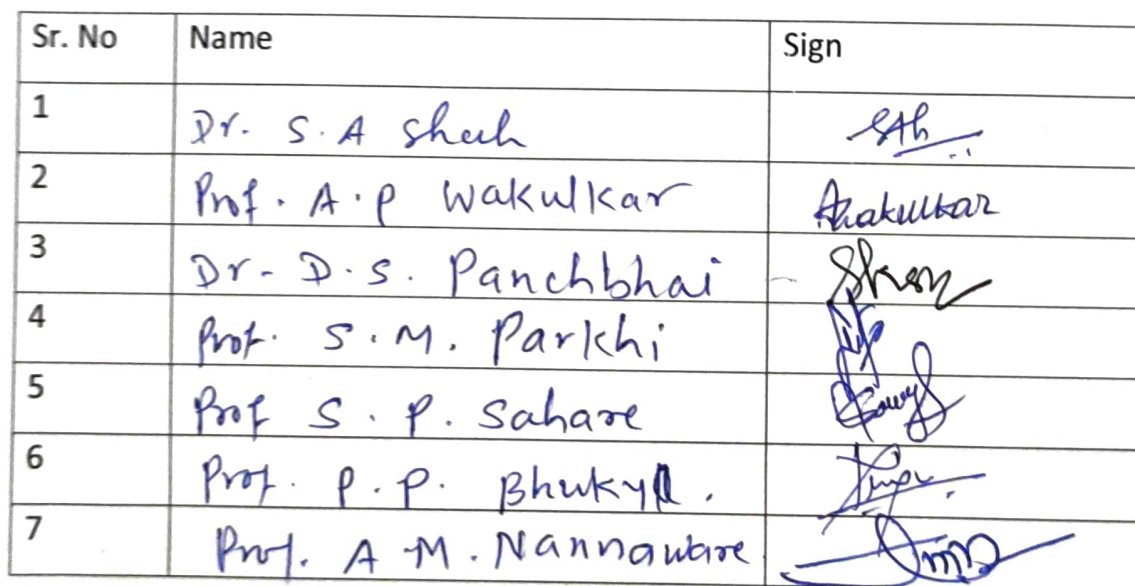 Sr. No Name Sign
1 Dr. S. A Shah
2 Prof. A. P Wakulkar Awakulkar
3 Dr- D. S. Panchbhai
4 Prof. S. M. Parkhi
5 Prof S. P. Sahare
6 Prof. P. P. Bhukya.
7 Prof. A M. Nannaware